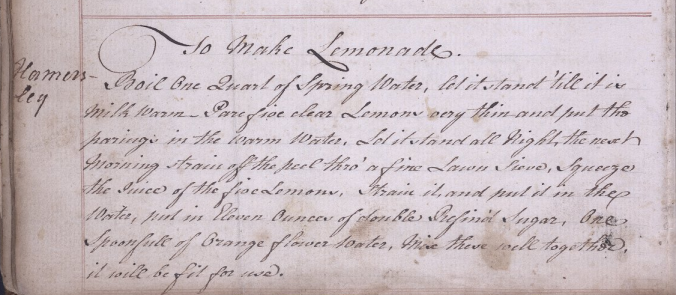 To Make Lemonade.
Hamers-
ley
Boil One Quart of Spring Water, let it stand 'till it is
Milk Warm - Pare five clear Lemons very thin and put the
parings in the warm Water, Let it stand all Night, the next
Morning strain off the peel thro' a fine Lawn Sieve, Squeeze
the Juice of the five Lemons, Strain it, and put it in the
Water, put in Eleven Ounces of double Refin'd Sugar, One
Spoonfull of Orange flower Water, Mix these well together,
it will be fit for use.